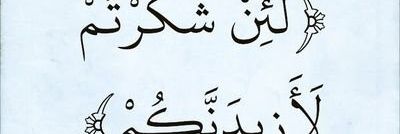 ﴿ لَئِنْ شَكَرْتُمْ
لَأَزِيدَنَّكُمْ ﴾